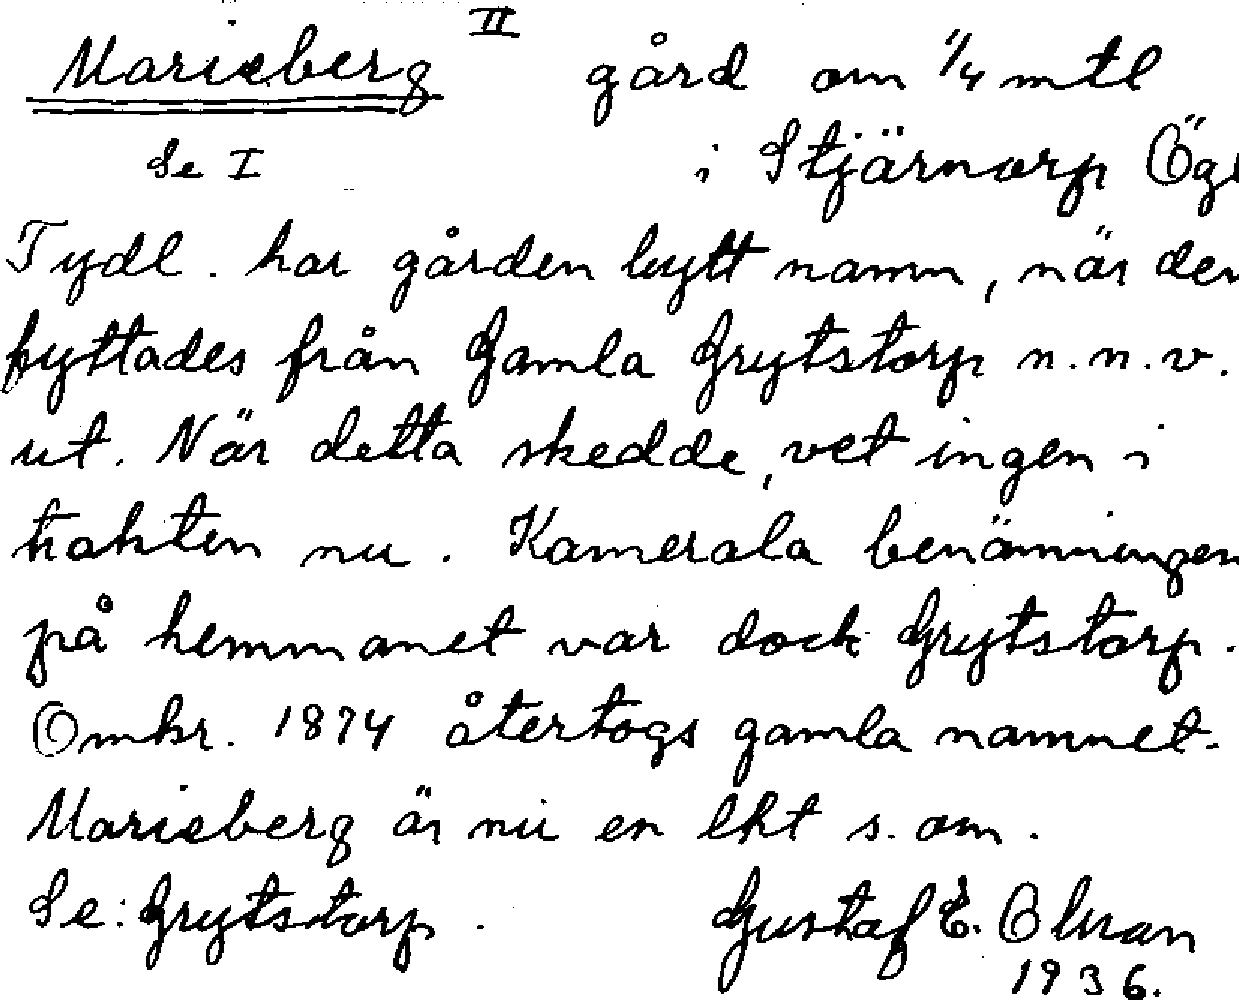 Marieberg II gård om 1/4 mtl
Se I i Stjärnorp Ög
Tydl. har gården bytt namn, när den
byttades från Gamla Grytstorp n.n.v.
ut. När detta skedde, vet ingen i
trakten nu. Kamerala benämningen
på hemmanet var dock Grytstorp.
Omkr. 1874 återtogs gamla namnet.
Marieberg är nu en lht s. om.
Se: Grytstorp. Gustaf E. Olman
1936.